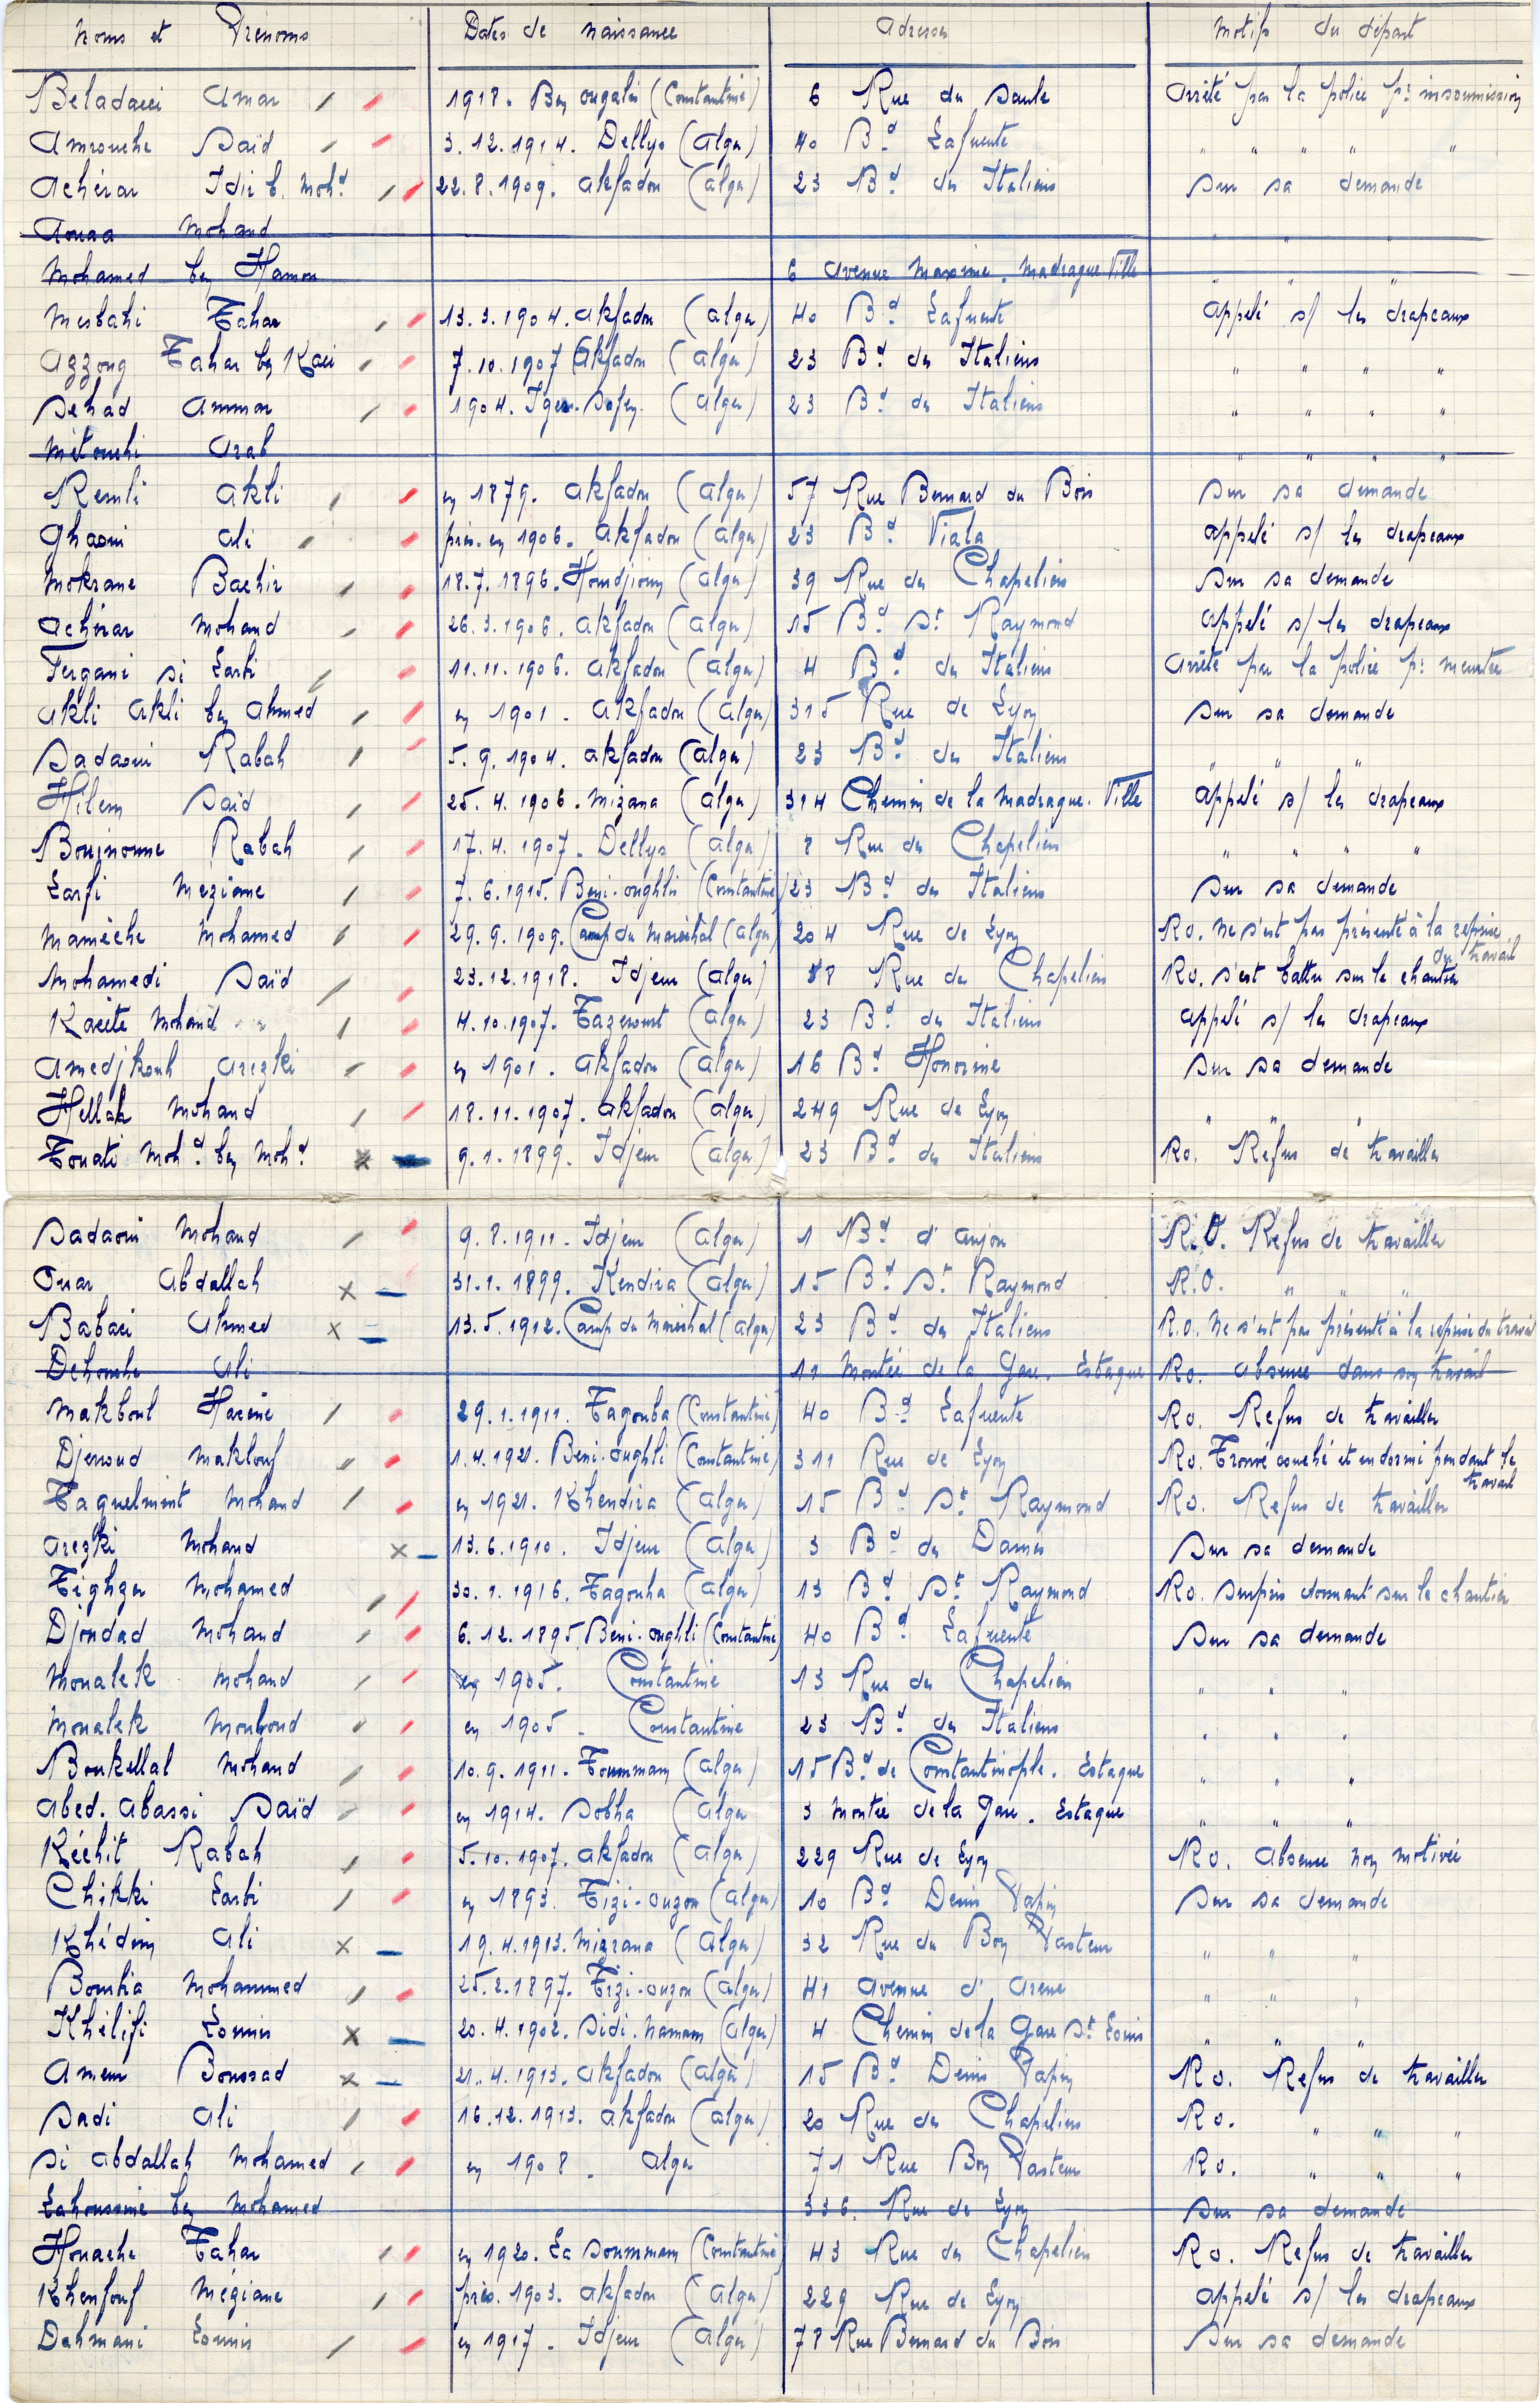 Noms et Prénoms Dates de naissance Adresses Motifs du départ
Beladaci Amar 1918. Ben ougalis (Constantine) 6 Rue du Saule Arrêté par la police pr insoumission
Amrouche Saïd 3.12.1914. Dellys (Alger) 40 Bd Lafuente " " " " "
Achérar Idir b. Mohd 22.8.1909. Akfadou (Alger) 23 Bd des Italiens Sur sa demande
Aouaa Mohand " " "
Mohamed ben Hamou 6 Avenue Maxime. Madrague Ville " " "
Mesbahi Tahar 13.3.1904. Akfadou (Alger) 40 Bd Lafuente appelé s/ les drapeaux
Azzoug Tahar ben Kaci 7.10.1907 Akfadou (Alger) 23 Bd des Italiens " " " "
Sehad Ammar 1904. Iger. Safen. (Alger) 23 Bd des Italiens " " " "
Métouchi Arab " " " "
Remli Akli en 1879. Akfadou (Alger) 57 Rue Bernard du Bois Sur sa demande
Ghaoui Ali prés. en 1906. Akfadou (Alger) 23 Bd Viala appelé s/ les drapeaux
Mokrane Bachir 18.7.1896. (Alger) 39 Rue des Chapeliers Sur sa demande
Achérar Mohand 26.3.1906. Akfadou (Alger) 15 Bd St Raymond appelé s/ les drapeaux
Fergani si Larbi 11.11.1906. Akfadou (Alger) 4 Bd des Italiens Arrêté par la police pr meurtre
Akli Akli ben Ahmed en 1901. Akfadou (Alger) 315 Rue de Lyon Sur sa demande
Sadaoui Rabah 5.9.1904. Akfadou (Alger) 23 Bd des Italiens " " "
Hilem Saïd 25.4.1906. Mizana (Alger) 314 Chemin de la Madrague. Ville appelé s/ les drapeaux
Boujnoune Rabah 17.4.1907. Dellys (Alger) 8 Rue des Chapeliers " " " "
Larfi Meziane 7.6.1915. Beni-oughlis (Constantine) 23 Bd des Italiens Sur sa demande
Mamèche Mohamed 29.9.1909. Camp du Maréchal (Alger) 204 Rue de Lyon Ro. Ne s'est pas présenté à la reprise
du travail
Mohamedi Saïd 23.12.1918. Idjeur (Alger) 18 Rue des Chapeliers Ro. s'est battu sur le chantier
Kacite Mohand 4.10.1907. Tazerourt (Alger) 23 Bd des Italiens appelé s/ les drapeaux
Amedjkouh Arezki en 1901. Akfadou (Alger) 16 Bd Honorine Sur sa demande
Hellak Mohand 18.11.1907. Akfadou (Alger) 249 Rue de Lyon " " "
Touati Mohd ben Mohd 9.1.1899. Idjeur (Alger) 23 Bd des Italiens Ro. Refus de travailler
Sadaoui Mohand 9.8.1911. Idjeur (Alger) 1 Bd d'anjou R.O. Refus de travailler
Ouar Abdallah 31.1.1899. Kendira (Alger) 15 Bd St Raymond R.O. " " "
Babaci Ahmed 13.5.1912. Camp du Maréchal (Alger) 23 Bd des Italiens R.O. Ne s'est pas présenté à la reprise du travail
Dehouche Ali 11 Montée de la Gare. Estaque Ro. absence dans son travail
Makboul Hacène 29.1.1911. Tagouba (Constantine) 40 Bd Lafuente Ro. Refus de travailler
Djenoud Maklouf 1.4.1921. Beni-oughli (Constantine) 311 Rue de Lyon Ro. Trouvé couché et endormi pendant le
travail
Taguelmint Mohand en 1921. Khendira (Alger) 15 Bd St Raymond Ro. Refus de travailler
Arezki Mohand 13.6.1910. Idjeur (Alger) 3 Bd des Dames Sur sa demande
Tighzer Mohamed 30.1.1916. Tagouha (Alger) 13 Bd St Raymond Ro. surpris dormant sur le chantier
Djoudad Mohand 6.12.1895 Beni-oughli (Constantine) 40 Bd Lafuente Sur sa demande
Moualek Mohand en 1905. Constantine 13 Rue des Chapeliers " " "
Moualek Mouhoud en 1905. Constantine 23 Bd des Italiens " " "
Boukellal Mohand 10.9.1911. Toummam (Alger) 15 Bd de Constantinople. Estaque " " "
Abed. Abassi Saïd en 1914. Sobha (Alger 3 Montée de la Gare. Estaque " " "
Kéchit Rabah 5.10.1907. Akfadou (Alger) 229 Rue de Lyon Ro. Absence non motivée
Chikki Larbi en 1893. Tizi-ouzou (Alger) 10 Bd Denis Papin Sur sa demande
Khédim Ali 19.4.1913. Mizrana (Alger) 32 Rue du Bon Pasteur " " "
Boutia Mohammed 25.2.1897. Tizi-ouzou (Alger) 41 avenue d'Arenc " " "
Khélifi Lounis 20.4.1902. Sidi. Namam (Alger) 4 Chemin de la Gare St Louis " " "
Ameur Boussad 21.4.1913. Akfadou (Alger) 15 Bd Denis Papin Ro. Refus de travailler
Sadi Ali 16.12.1913. Akfadou (Alger) 20 Rue des Chapeliers Ro. " " "
Si Abdallah Mohamed en 1908. Alger 71 Rue Bon Pasteur Ro. " " "
Lahoussine ben Mohamed 336. Rue de Lyon Sur sa demande
Houache Tahar en 1920. La Soummam (Constantine) 43 Rue des Chapeliers Ro. Refus de travailler
Khenfouf Méziane prés. 1903. Akfadou (Alger) 229 Rue de Lyon appelé s/ les drapeaux
Dahmani Lounis en 1917. Idjeur (Alger) 78 Rue Bernard du Bois Sur sa demande